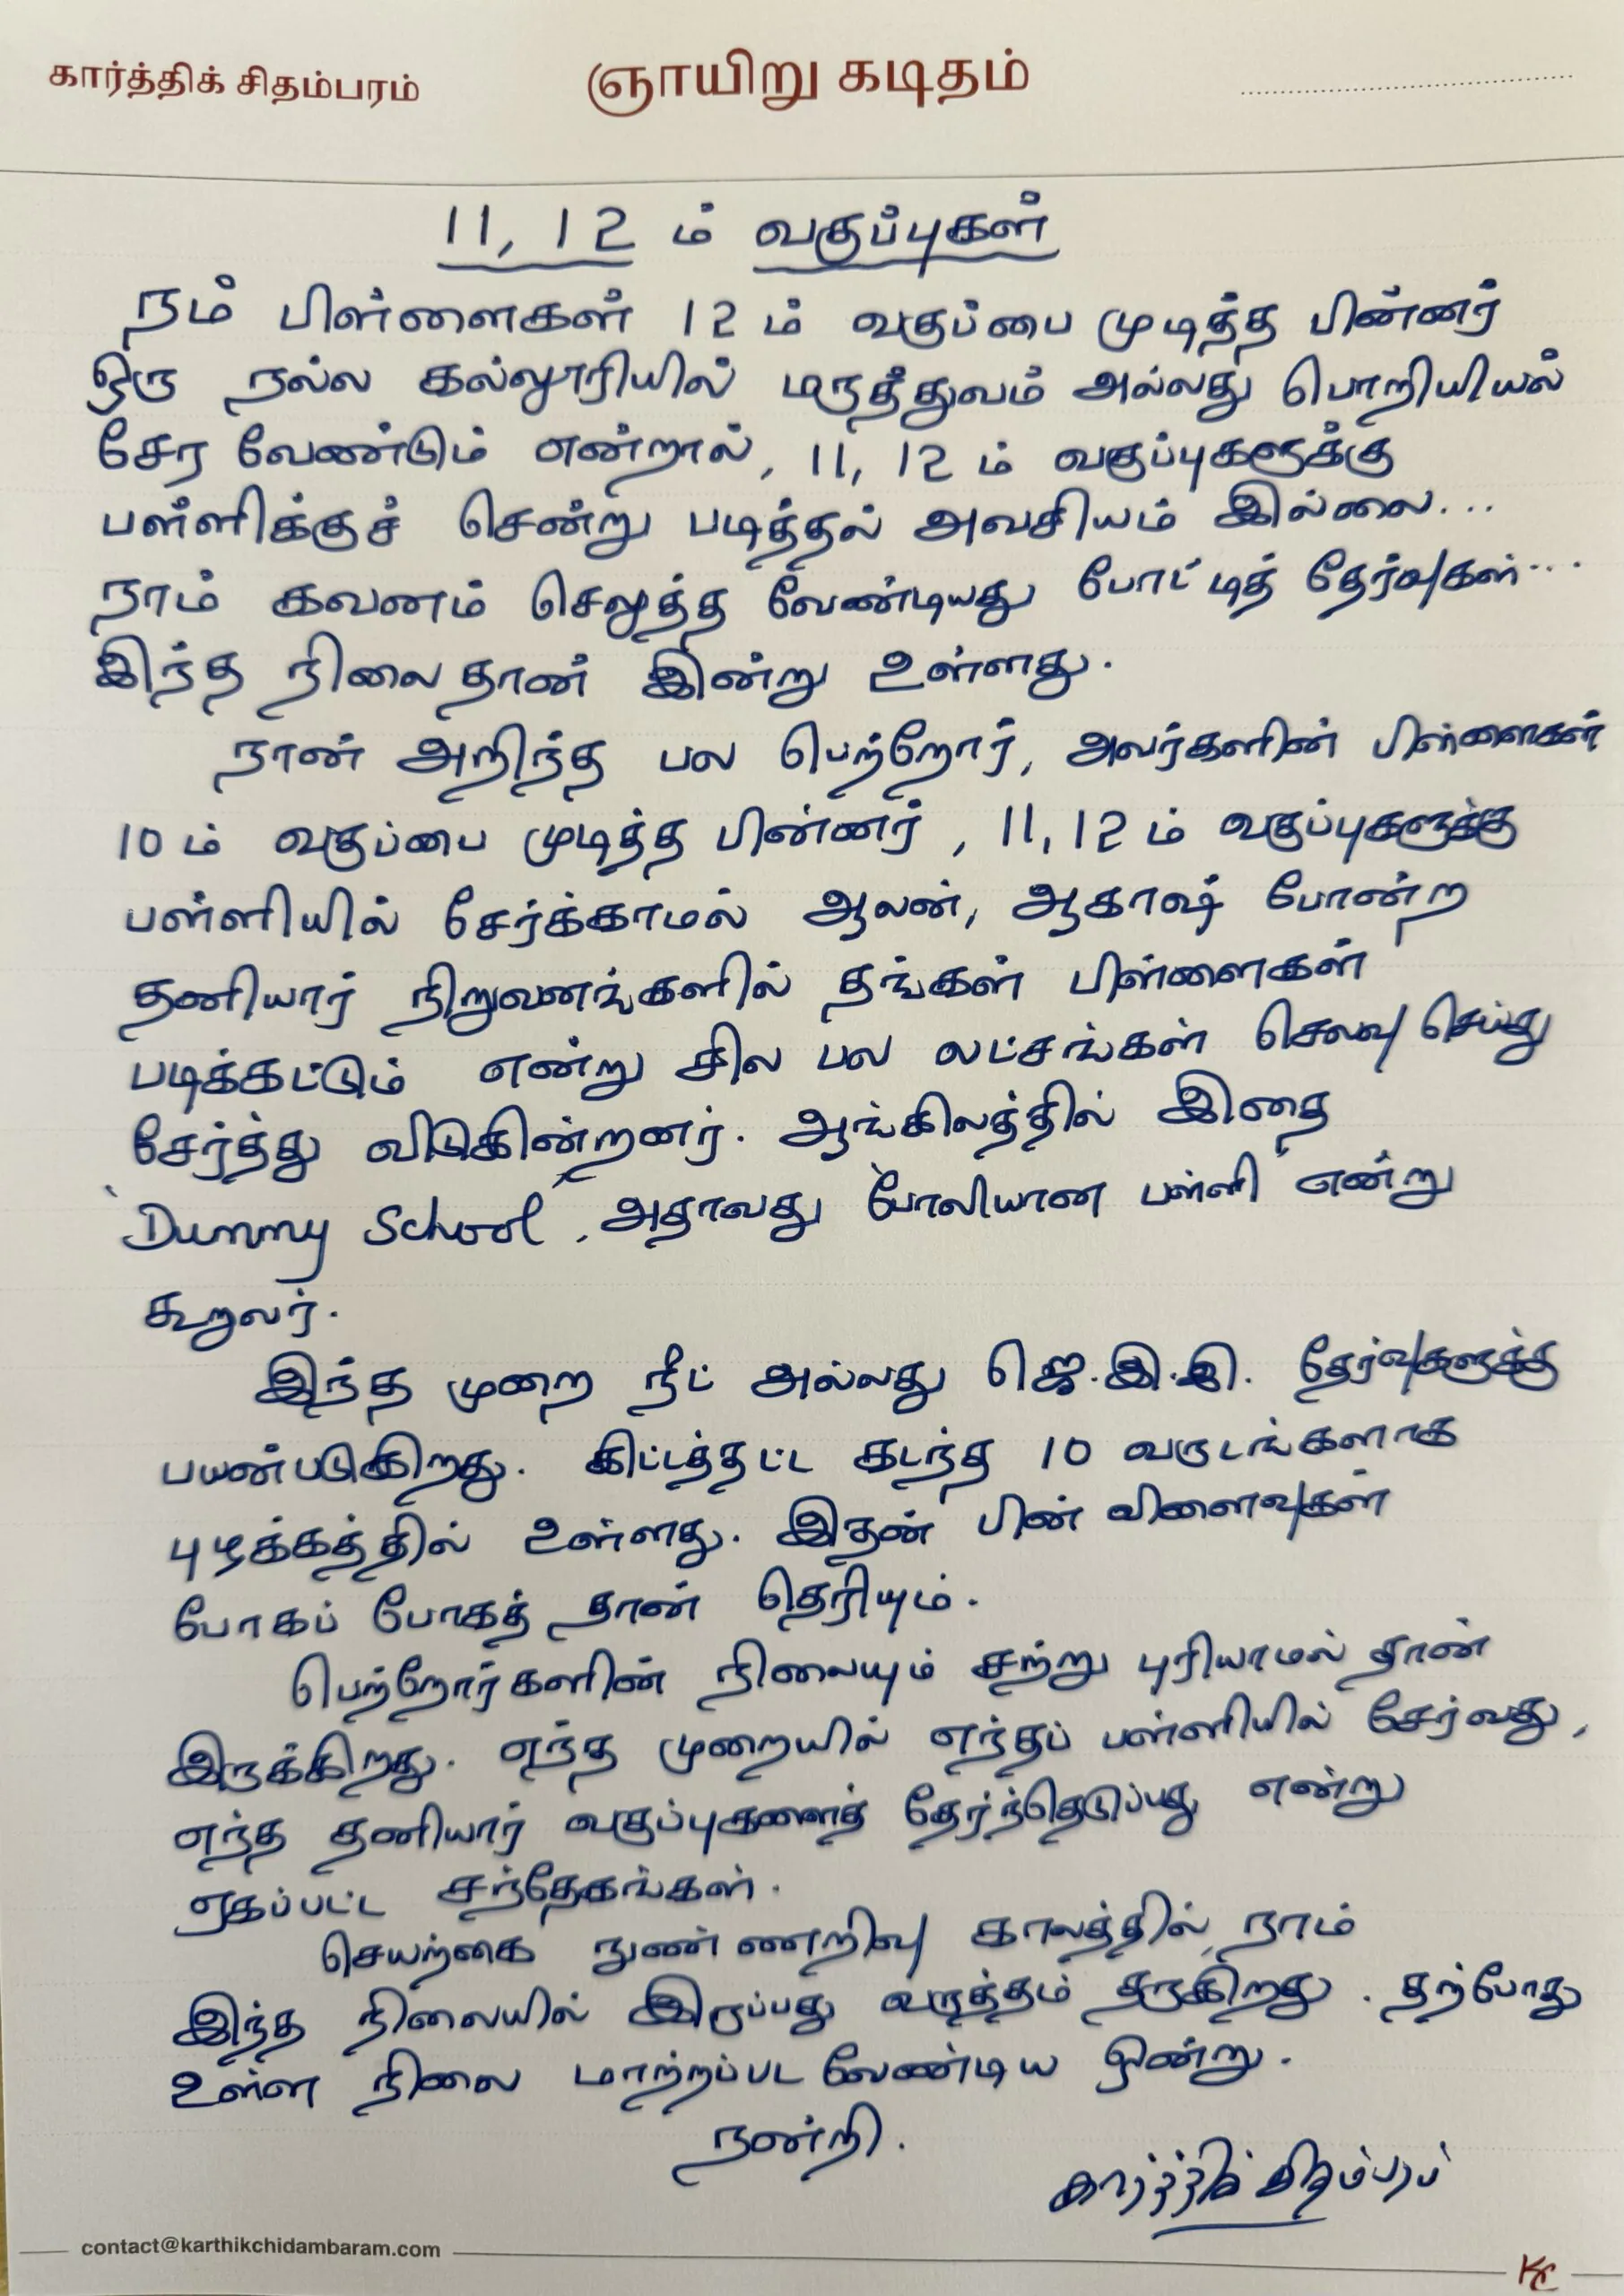 கார்த்திக் சிதம்பரம்
ஞாயிறு கடிதம்
11, 12 ம் வகுப்புகள்
நம் பிள்ளைகள் 12 ம் வகுப்பை முடித்த பின்னர்
ஒரு நல்ல கல்லூரியில் மருத்துவம் அல்லது பொறியியல்
சேர வேண்டும் என்றால், 11, 12 ம் வகுப்புகளுக்கு
பள்ளிக்குச் சென்று படித்தல் அவசியம் இல்லை...
நாம் கவனம் செலுத்த வேண்டியது போட்டித் தேர்வுகள்...
இந்த நிலை தான் இன்று உள்ளது.
நான் அறிந்த பல பெற்றோர், அவர்களின் பிள்ளைகள்
10 ம் வகுப்பை முடித்த பின்னர், 11, 12 ம் வகுப்புகளுக்கு
பள்ளியில் சேர்க்காமல் ஆலன், ஆகாஷ் போன்ற
தனியார் நிறுவனங்களில் தங்கள் பிள்ளைகள்
படிக்கட்டும் என்று சில பல லட்சங்கள் செலவு செய்து
சேர்த்து விடுகின்றனர். ஆங்கிலத்தில் இதை
'Dummy School', அதாவது 'போலியான பள்ளி' என்று
கூறுவர்.
இந்த முறை நீட் அல்லது ஜெ.இ.இ. தேர்வுகளுக்கு
பயன்படுகிறது. கிட்டத்தட்ட கடந்த 10 வருடங்களாக
புழக்கத்தில் உள்ளது. இதன் பின் விளைவுகள்
போகப் போகத் தான் தெரியும்.
பெற்றோர்களின் நிலையும் சற்று புரியாமல் தான்
இருக்கிறது. எந்த முறையில் எந்தப் பள்ளியில் சேர்வது,
எந்த தனியார் வகுப்புகளைத் தேர்ந்தெடுப்பது என்று
ஏகப்பட்ட சந்தேகங்கள்.
செயற்கை நுண்ணறிவு காலத்தில், நாம்
இந்த நிலையில் இருப்பது வருத்தம் தருகிறது. தற்போது
உள்ள நிலை மாற்றப்பட வேண்டிய ஒன்று.
நன்றி.
கார்த்திக் சிதம்பரம்
contact@karthikchidambaram.com
KC